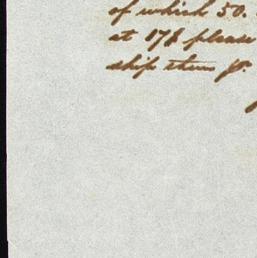 of which 50.
at 178 please
ship them pr.